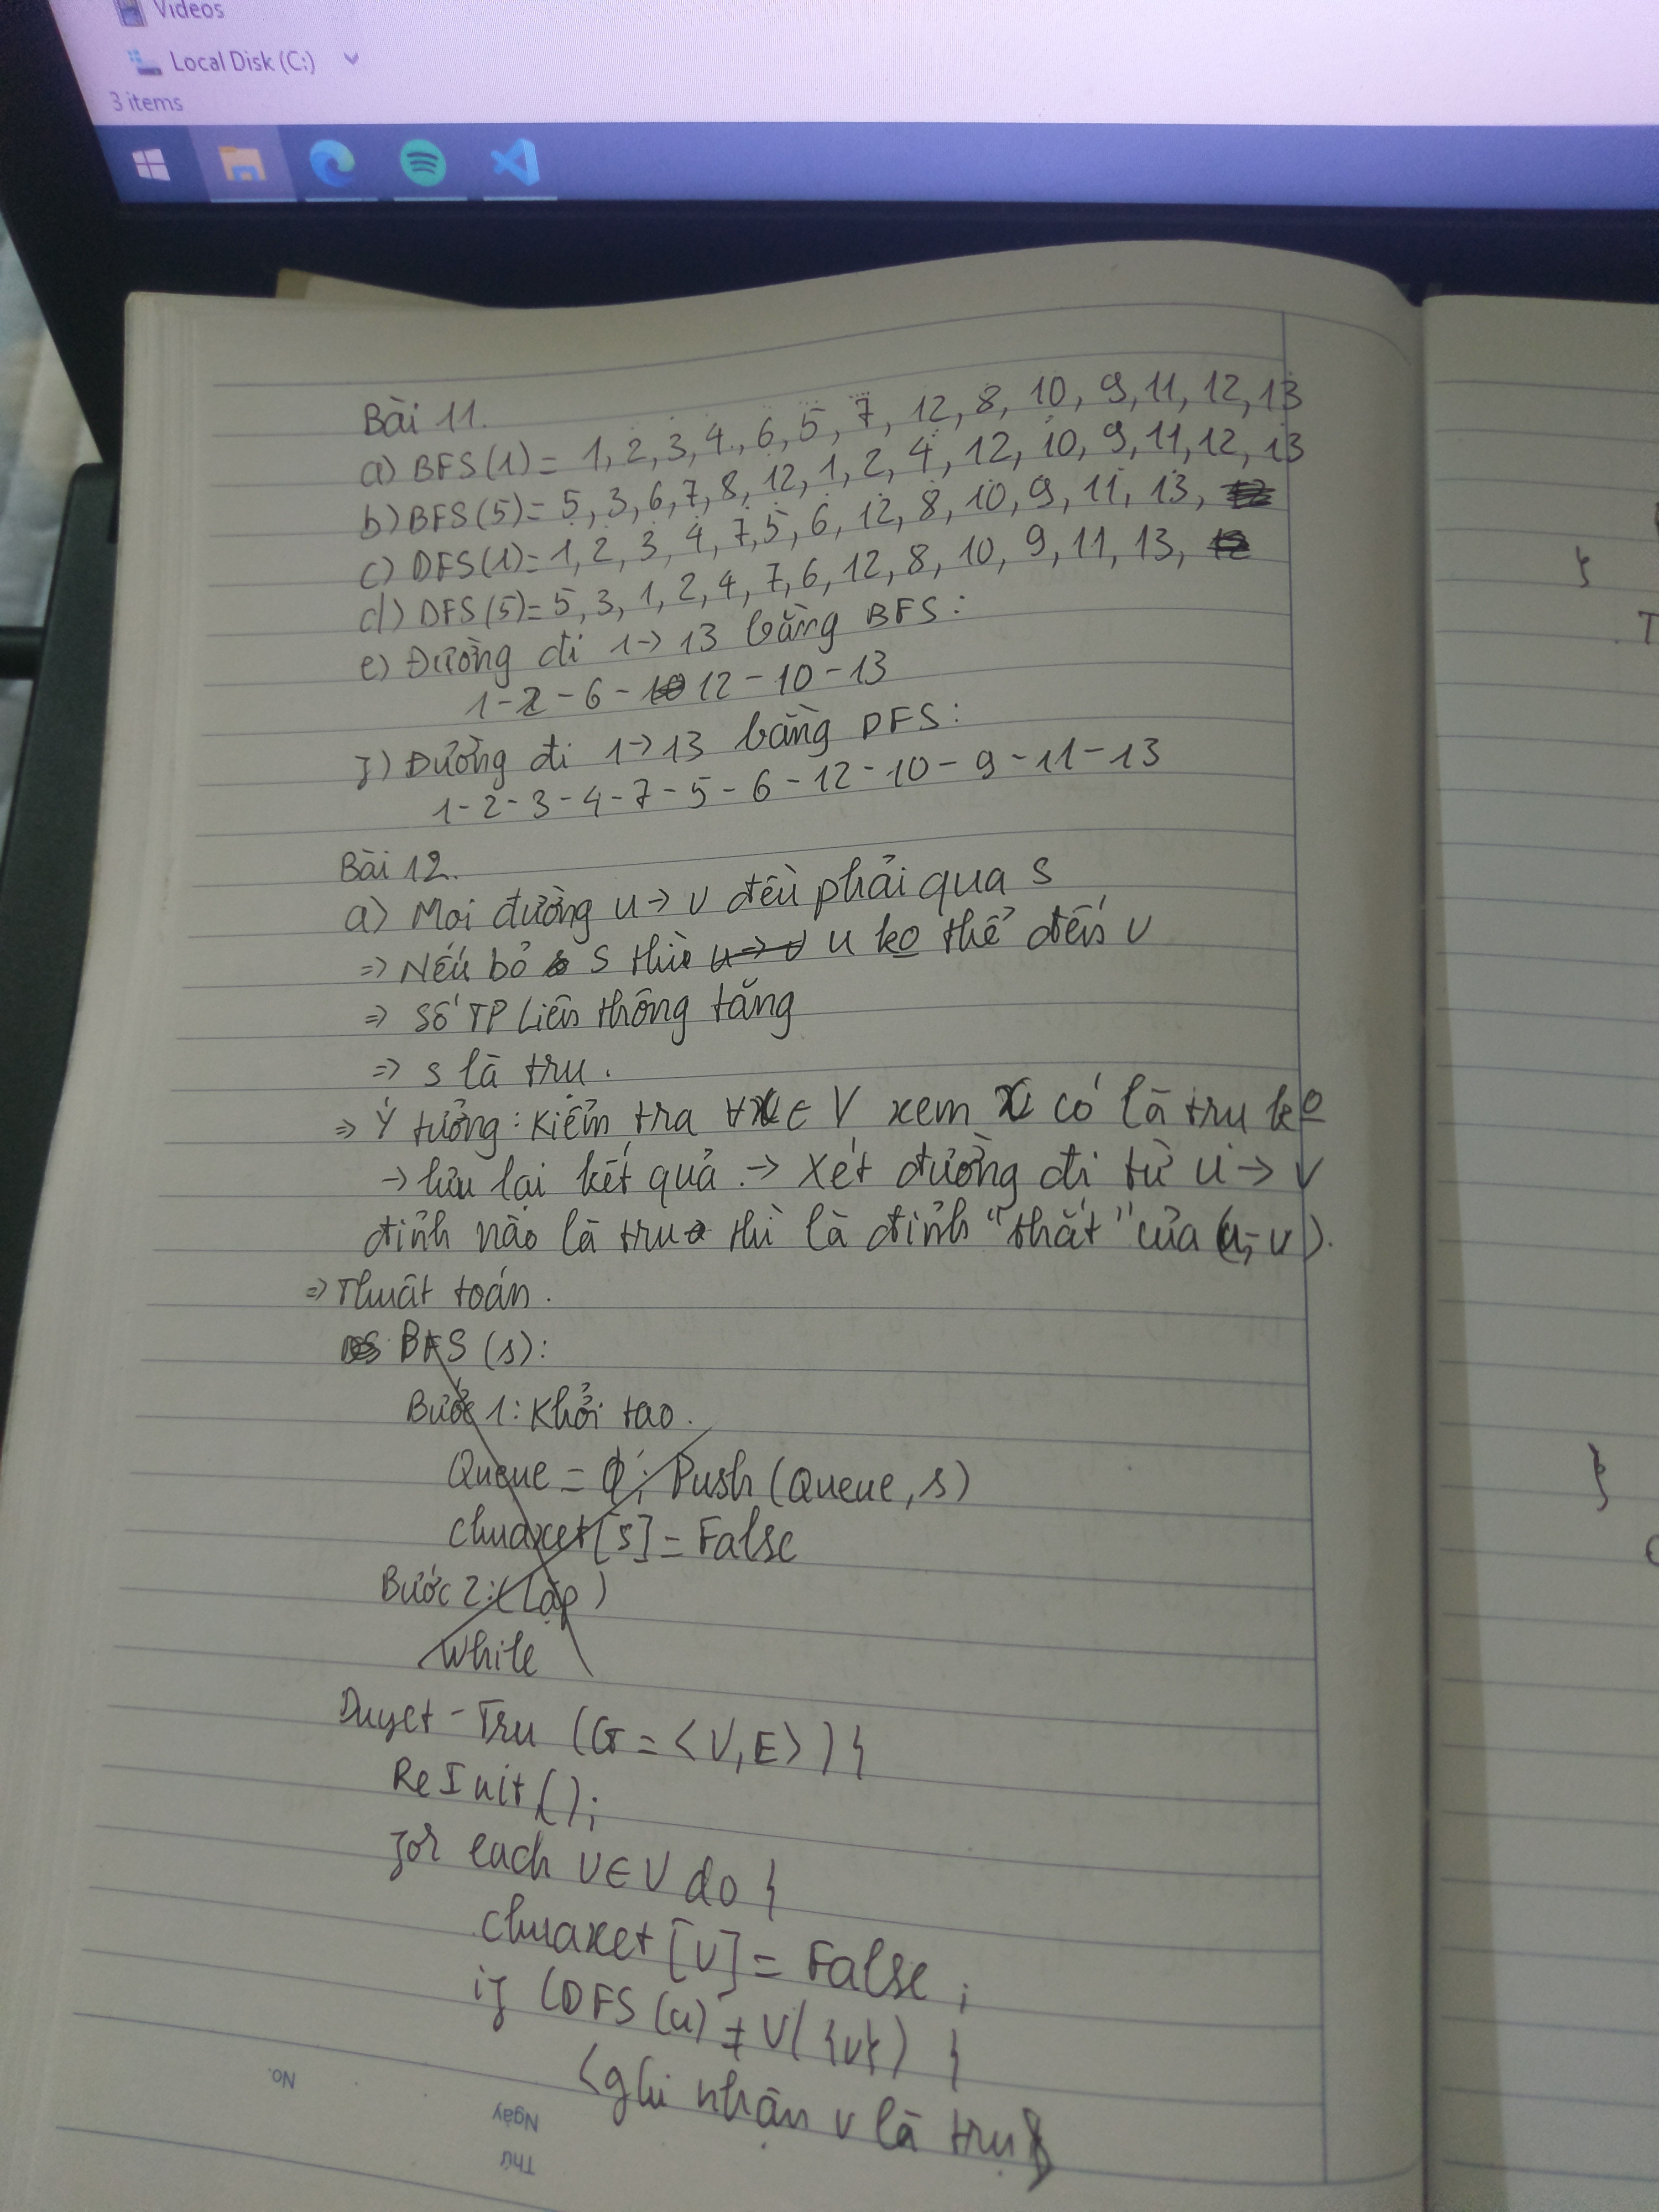 Videos
Local Disk (C:)
3 items
Bài 11.
a) BFS(1) = 1, 2, 3, 4, 6, 5, 7, 12, 8, 10, 9, 11, 12, 13
b) BFS(5) = 5, 3, 6, 7, 8, 12, 1, 2, 4, 12, 10, 9, 11, 12, 13
c) DFS(1) = 1, 2, 3, 4, 7, 5, 6, 12, 8, 10, 9, 11, 13,
d) DFS(5) = 5, 3, 1, 2, 4, 7, 6, 12, 8, 10, 9, 11, 13,
e) Đường đi 1 -> 13 bằng BFS:
1 - 2 - 6 - 12 - 10 - 13
f) Đường đi 1 -> 13 bằng DFS:
1 - 2 - 3 - 4 - 7 - 5 - 6 - 12 - 10 - 9 - 11 - 13
Bài 12.
a) Mọi đường u -> v đều phải qua s
=> Nếu bỏ s thì u ko thể đến v
=> Số TP liên thông tăng
=> s là trụ.
=> Ý tưởng: Kiểm tra ∀x ∈ V xem x có là trụ ko
-> lưu lại kết quả. -> Xét đường đi từ u -> v
đỉnh nào là trụ thì là đỉnh "thắt" của (u, v).
=> Thuật toán.
BFS (s):
Bước 1: Khởi tạo.
Queue = ∅; Push (Queue, s)
chuaxet [s] = False
Bước 2: (Lặp)
While
Duyet - Tru (G = <V, E>) {
ReInit();
for each v ∈ V do {
chuaxet [v] = False;
if (DFS (u) ≠ V \ {v}) {
<ghi nhận v là trụ>
No.
Ngày
Thứ
}
T
}